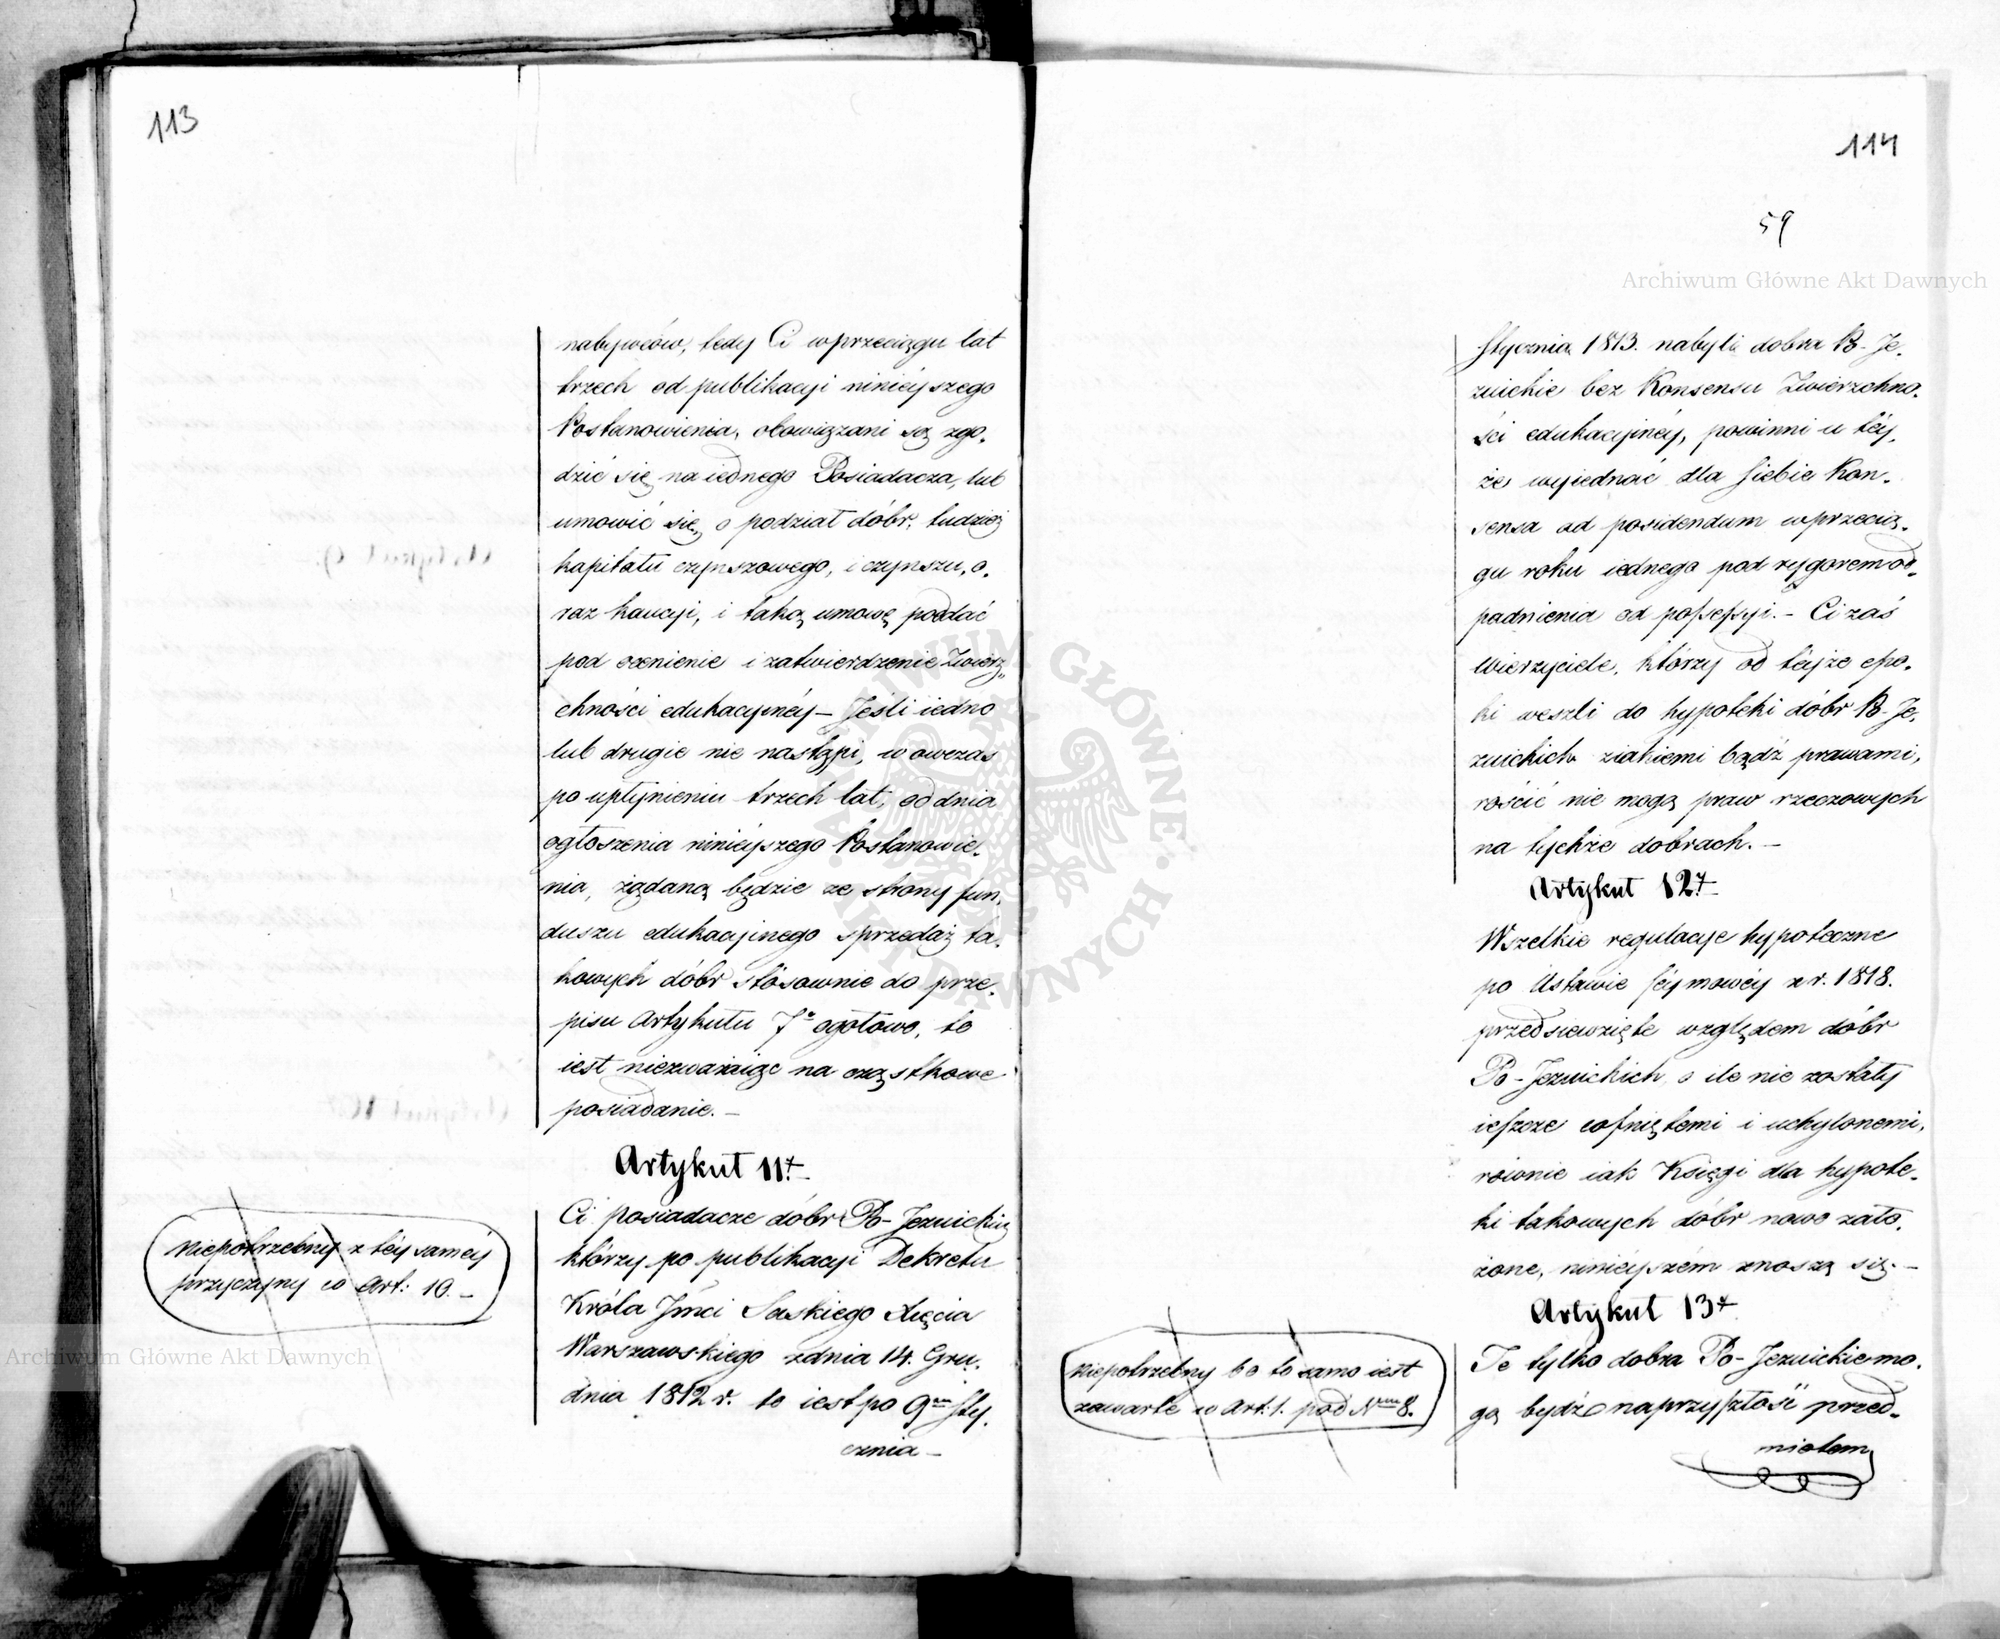 113
nabywców, tedy Ci wprzeciągu lat
trzech od publikacyi ninieyszego
Postanowienia, obowiązani są zgo-
dzić się na iednego Posiadacza, lub
umówić się, o podział dóbr, tudzież
kapitału czynszowego, i czynszu, o-
raz kaucyi, i taką umowę poddać
pod ocenienie i zatwierdzenie Zwierz-
chności edukacyinéy – Jeśli iedno
lub drugie nie nastąpi, wówczas
po upłynieniu trzech lat, od dnia
ogłoszenia ninieyszego Postanowie-
nia, żądaną będzie ze strony fun-
duszu edukacyinego sprzedaż ta-
kowych dóbr stósownie do prze-
pisu Artykułu 7º ogółowo, to
iest niezważaiąc na cząstkowe
posiadanie. –
Artykuł 11.
Niepotrzebny z téy saméy
przyczyny co Art: 10. –
Ci posiadacze dóbr Po-Jezuickich
którzy po publikacyi Dekretu
Króla Jmci Saskiego Xięcia
Warszawskiego zdnia 14. Gru-
dnia 1812 r. to iest po 9m Sty-
cznia –
114
59
Archiwum Główne Akt Dawnych
Stycznia 1813. nabyli dobra Po-Je-
zuickie bez Konsensu Zwierzchno-
ści edukacyinéy, powinni u téy-
że wyiednać dla siebie Kon-
sensa ad posidendum wprzecią-
gu roku iednego pod rygorem od-
padnienia od possessyi. – Ci zaś
Wierzyciele, którzy od téyże epo-
ki weszli do hypoteki dóbr Po-Je-
zuickich ziakiemi bądź prawami,
rościć nie mogą praw rzeczowych
na tychże dobrach. –
Artykuł 12
Wszelkie regulacye hypoteczne
po Ustawie Séymowéy z r. 1818.
przedsiewzięte względem dóbr
Po-Jezuickich, o ile nie zostały
ieszcze cofniętemi i uchylonemi,
równie iak Księgi dla hypote-
ki takowych dóbr nowo zało-
żone, ninieyszém znoszą się. –
Artykuł 13
Niepotrzebny bo to samo iest
zawarte w Art: 1. pod Nrm 8.
Te tylko dobra Po-Jezuickie mo-
gą bydź naprzyszłość przed-
miotem
Archiwum Główne Akt Dawnych
ARCHIWUM GŁÓWNE AKT DAWNYCH